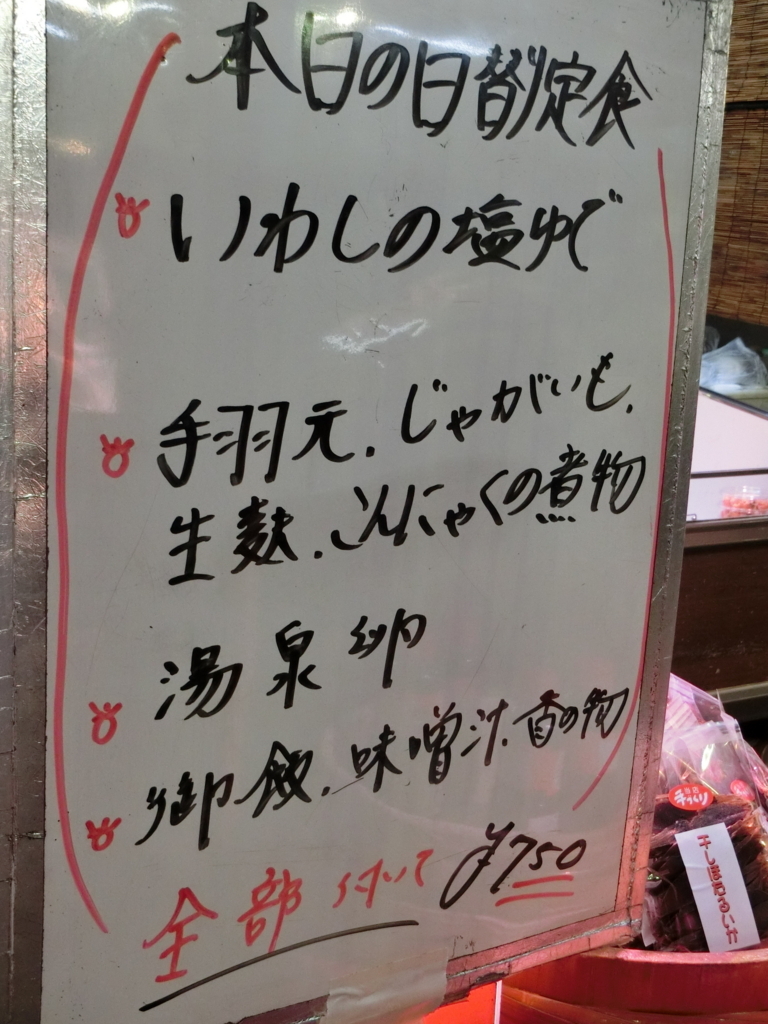 本日の日替り定食
いわしの塩ゆで
手羽元、じゃがいも、
生麩、こんにゃくの煮物
湯泉卵
御飯、味噌汁、香の物
全部付いて ¥750
手づくり
干しほたるいか